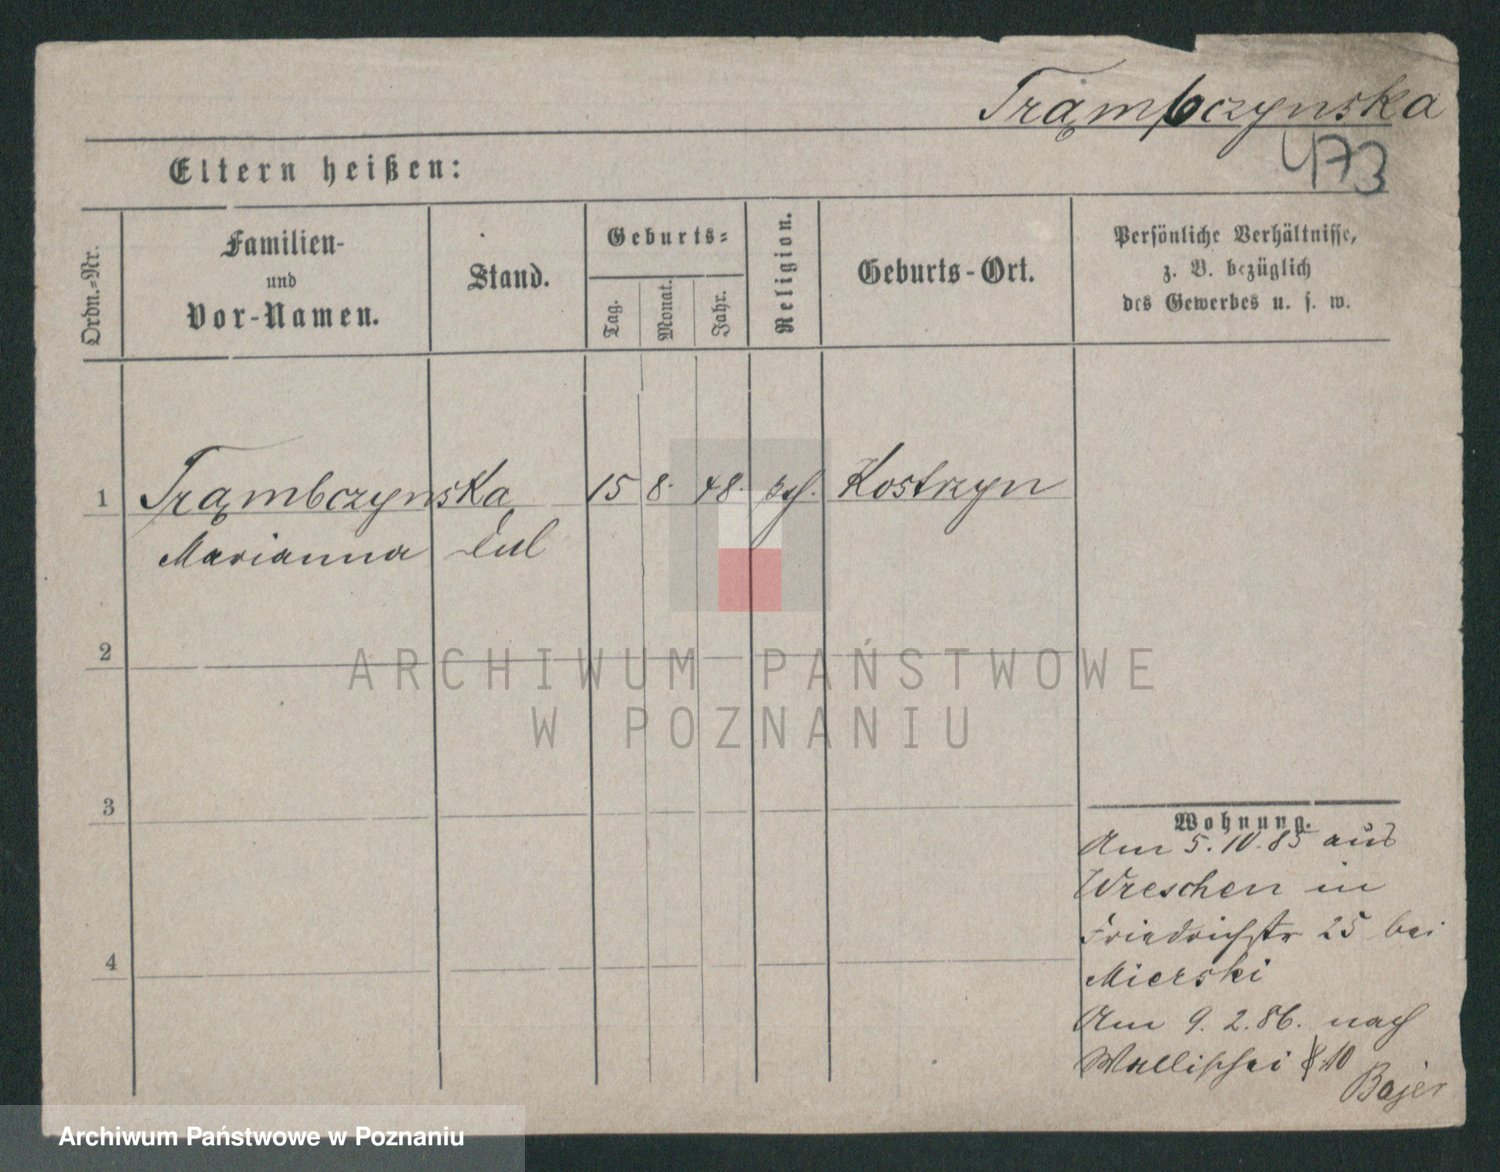 Trąmbczynska
473
Eltern heißen:
Ordn.-Nr.
Familien-
und
Vor-Namen.
Stand.
Geburts-
Tag.
Monat.
Jahr.
Religion.
Geburts-Ort.
Persönliche Verhältnisse,
z. B. bezüglich
des Gewerbes u. s. w.
1 Trąmbczynska 15 8. 48. Kostrzyn
Marianna
2
3
4
Wohnung.
Am 5.10.85 aus
Wreschen in
Friedrichstr 25 bei
Mierski
Am 9.2.86. nach
Wallischei 10
Bajer
ARCHIWUM PAŃSTWOWE
W POZNANIU
Archiwum Państwowe w Poznaniu